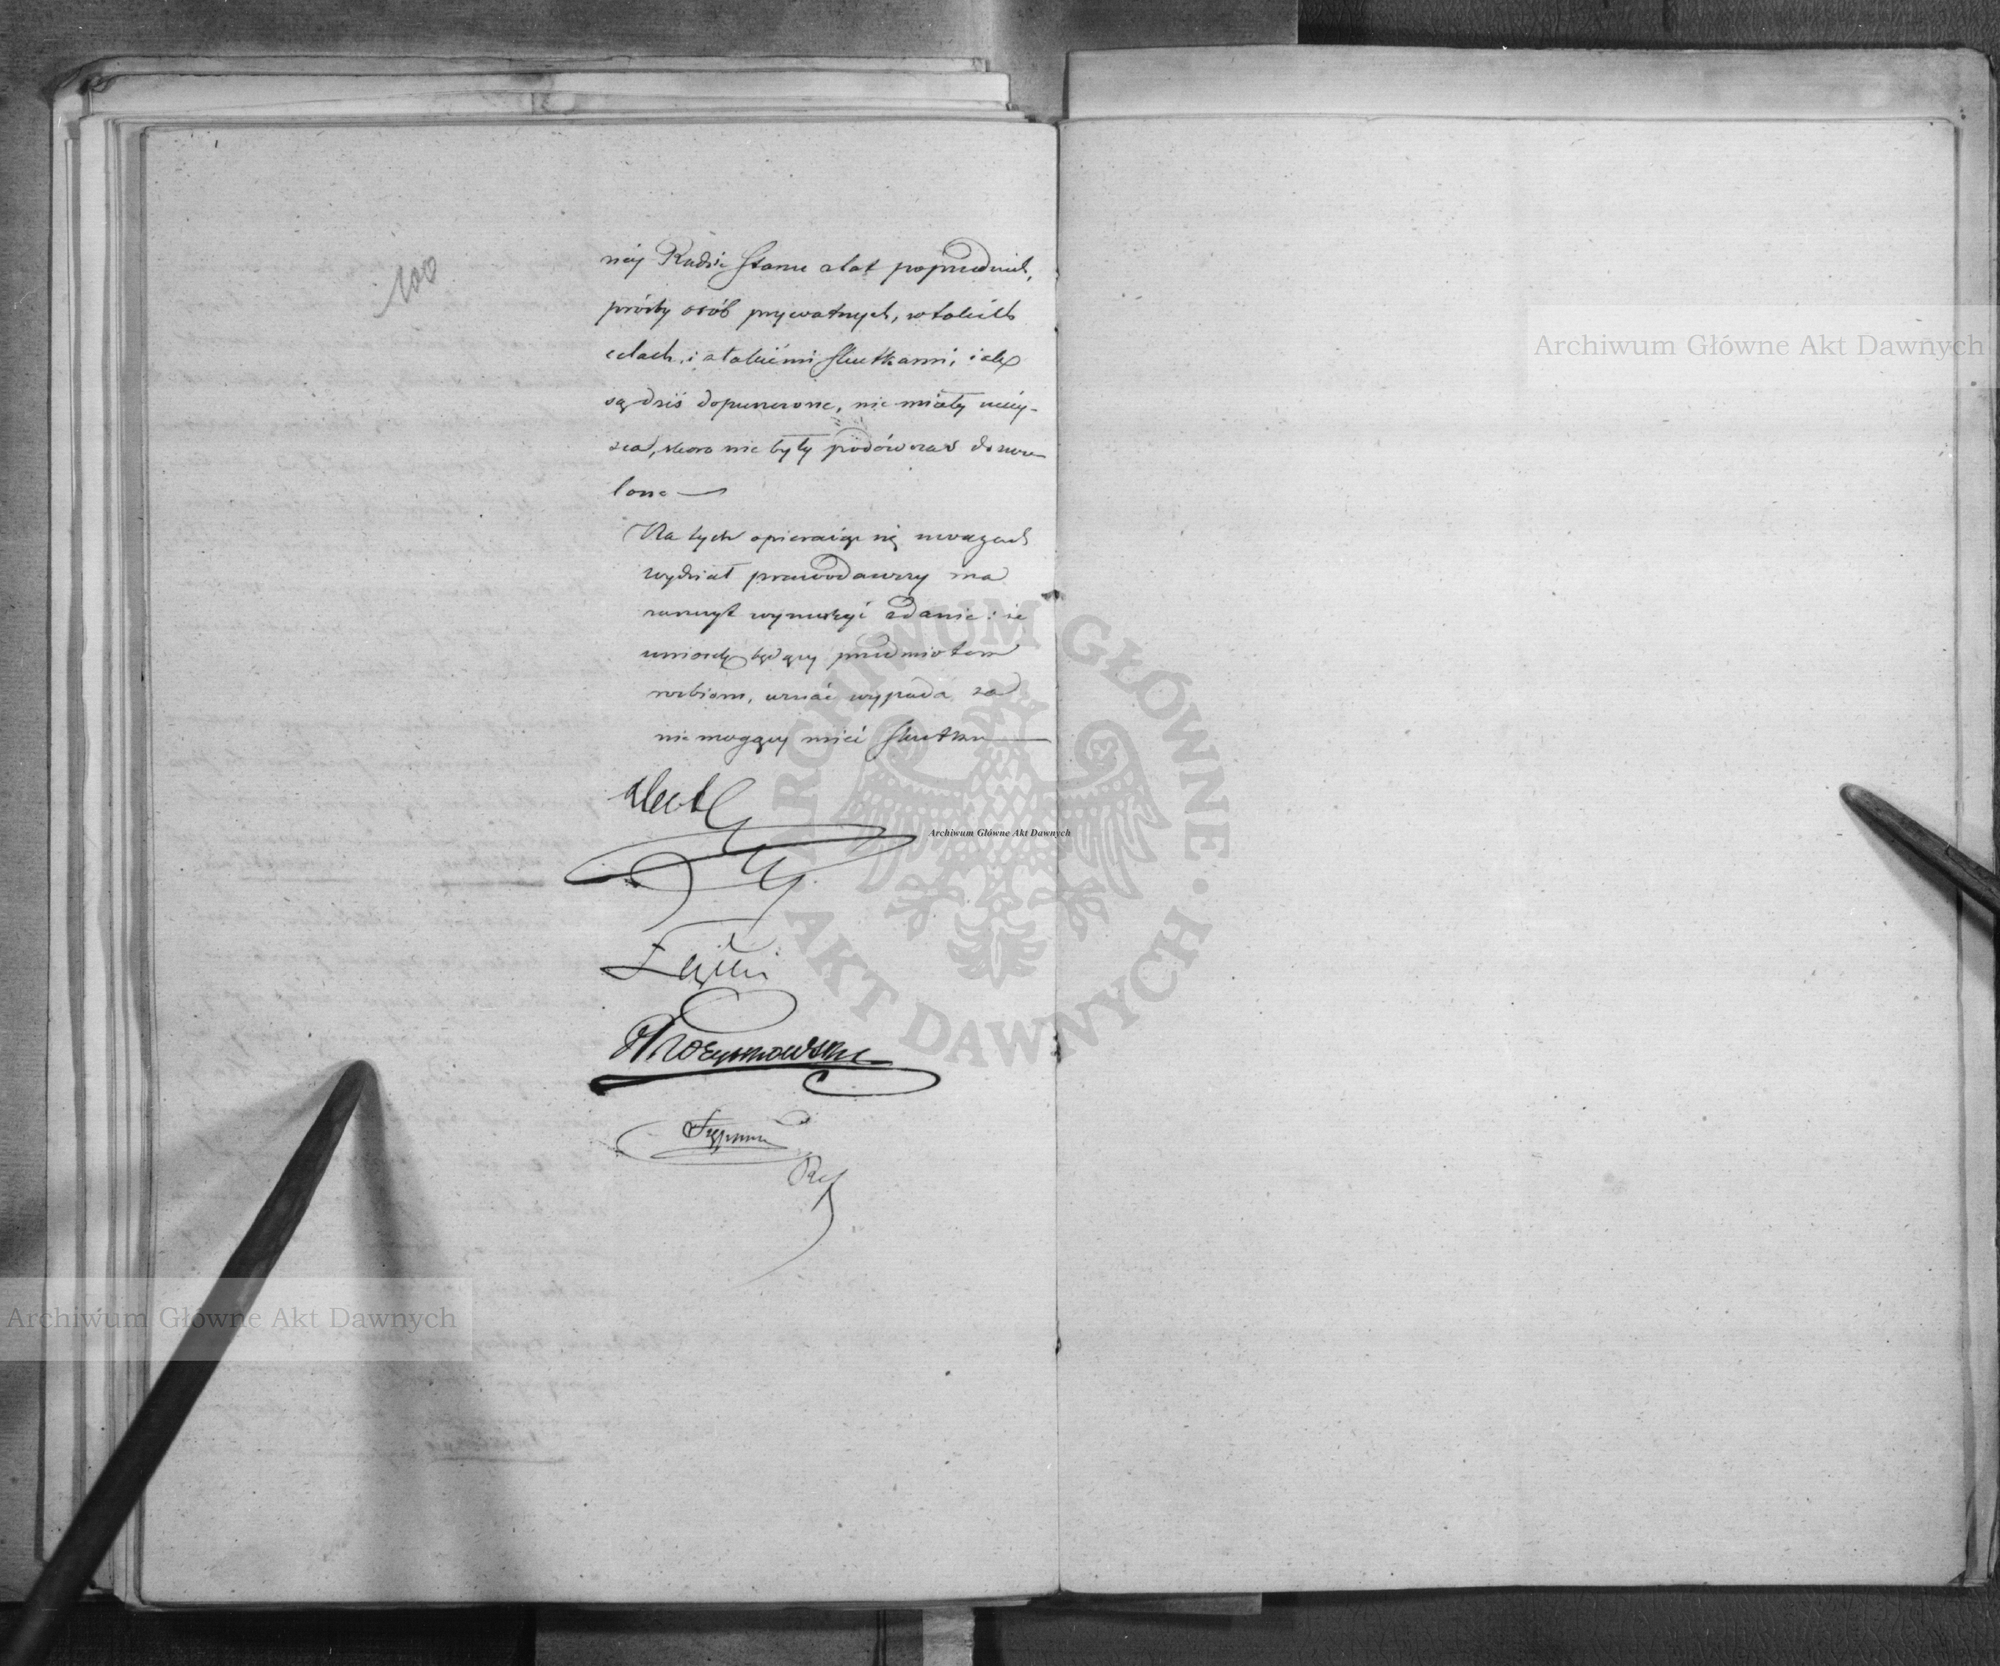 100
niéj Radzie Stanu z lat poprzednich,
prośby osób prywatnych, w takich
celach, i z takiémi skutkami, iakie
są dziś dopuszczone, nie miały miéy-
sca, skoro nie były podówczas dozwo
lone —
Na tych opieraiąc się uwagach
wydział prawodawczy ma
zaszczyt wynurzyć zdanie: że
wniosek będący przedmiotem
rozbioru, uznać wypada za
nie mogący mieć skutku
Archiwum Główne Akt Dawnych
Archiwum Główne Akt Dawnych
Archiwum Główne Akt Dawnych
ARCHIWUM GŁÓWNE AKT DAWNYCH